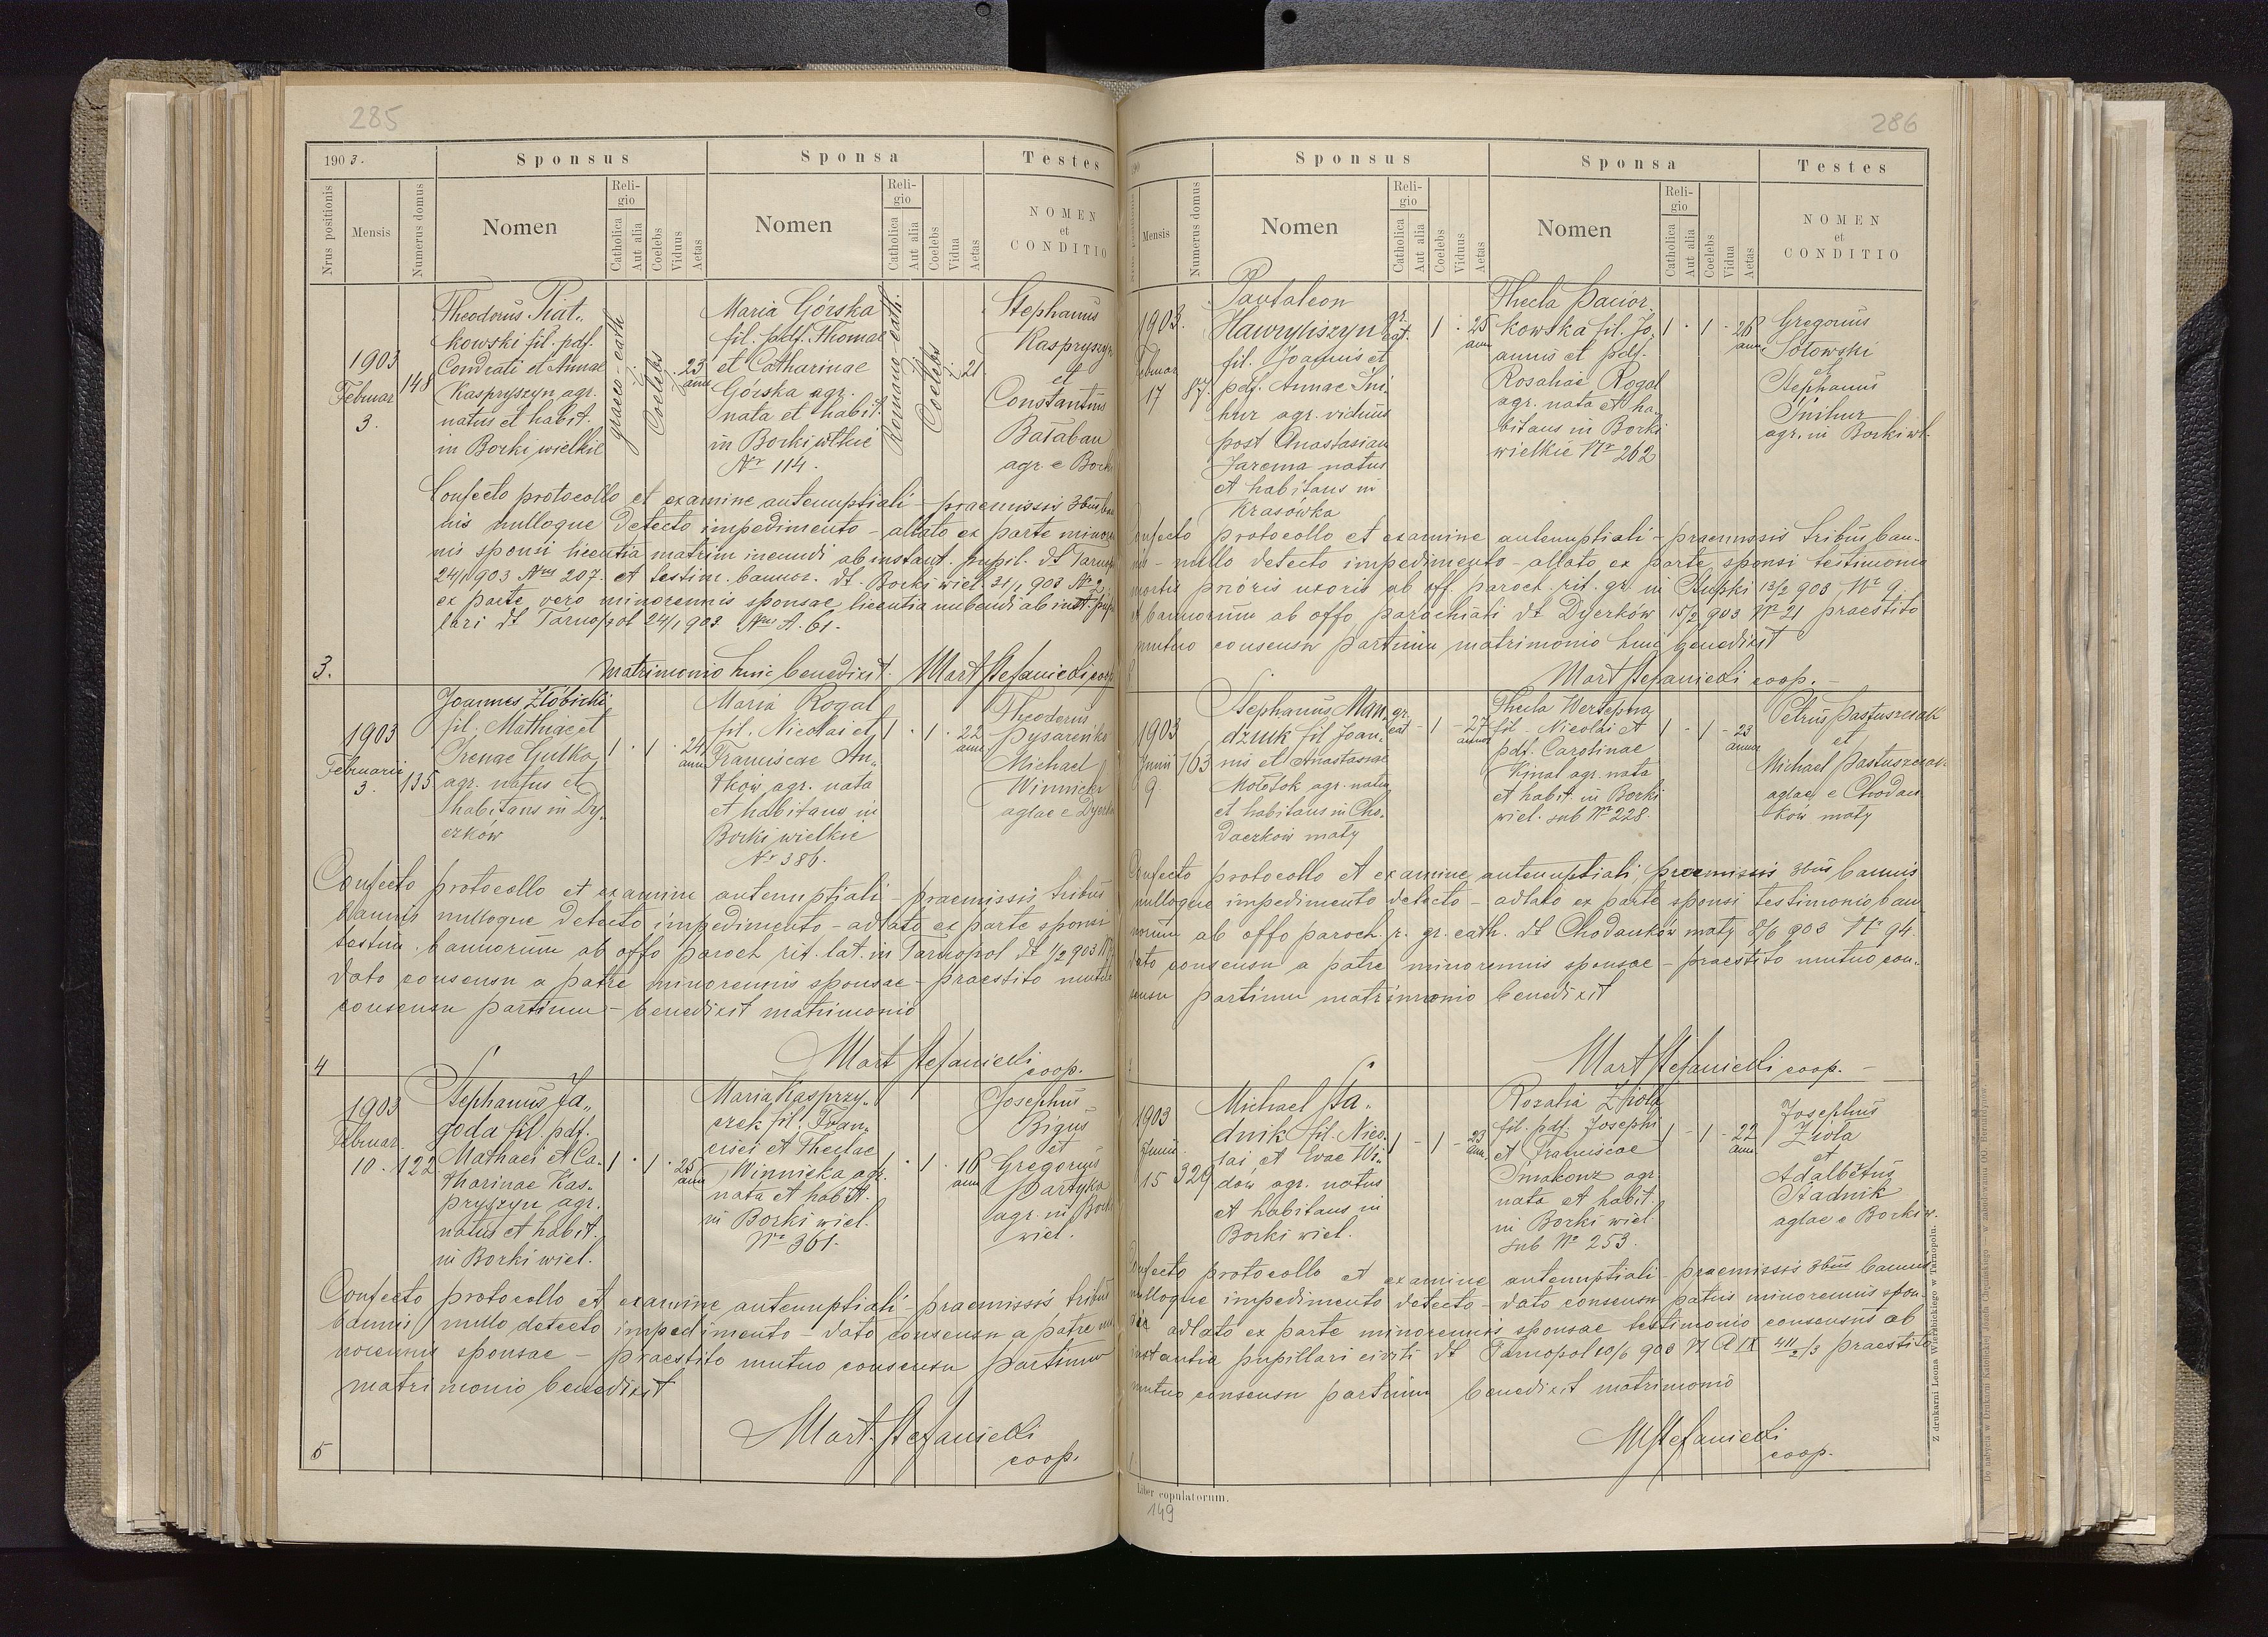 285
1903.
Sponsus
Sponsa
Testes
Nrus positionis
Mensis
Numerus domus
Nomen
Religio
Catholica
Aut alia
Coelebs
Viduus
Aetas
Nomen
Religio
Catholica
Aut alia
Coelebs
Vidua
Aetas
NOMEN
et
CONDITIO
1903
Februar
3.
148
Theodorus Piat-
kowski fil. pdf.
Condrati et Annae
Kaspryszyn agr.
natus et habit.
in Borki wielkie
graeco-cath
Coelebs
23
ann
Maria Górska
fil. pdf. Thomae
et Catharinae
Górska agr.
nata et habit.
in Borki wlkie
Nr 114.
Romano-cath.
Coelebs
21
Stephanus
Kaspryszyn
et
Constantinus
Bałaban
agr. e Borki
Confecto protocollo et examine antenuptiali - praemissis 3bus ban
nis nulloque detecto impedimento - allato ex parte minore
nis sponsi licentia matrim ineundi ab instant. pupil. dt Tarnop
24/1 903 Nrus 207. et testim. bannor. dt. Borki wiel. 31/1 903 Nr 2
ex parte vero minorennis sponsae licentia nubendi ab inst. pupil
lari dt Tarnopol 24/1 903 Nrus A. 61.
3.
matrimonio huic benedixit. Mart Stefanicki coop
1903
Februarii
3.
135
Joannes Złobicki
fil. Mathiae et
Irenae Gulka
agr. natus et
habitans in Dy-
czków
1 . 1 . 24
ann
Maria Rogal
fil. Nicolai et
Franciscae An-
tków agr. nata
et habitans in
Borki wielkie
Nr 386.
1 . 1 . 22
ann
Theodorus
Pysarenko
Michael
Winnicki
aglae e Dycz
Confecto protocollo et examine antenuptiali - praemissis tribus
bannis nulloque detecto impedimento - adlato ex parte sponsi
testim. bannorum ab offo paroch rit. lat. in Tarnopol dt 1/2 903
dato consensu a patre minorennis sponsae - praestito mutuo
consensu partium - benedixit matrimonio
4
Mart Stefanicki
coop.
1903
Februar
10.
122
Stephanus Ja-
goda fil. pdf.
Mathaei et Ca-
tharinae Kas-
pryszyn agr.
natus et habit.
in Borki wiel.
1 . 1 . 25
ann
Maria Kasprzy-
czek fil. Fran-
cisci et Theclae
Winnicka agr.
nata et habit.
in Borki wiel.
Nr 361.
1 . 1 . 16
ann
Josephus
Bigus
et
Gregorius
Partyka
agr. in Borki
wiel.
Confecto protocollo et examine antenuptiali - praemissis tribus
bannis nullo detecto impedimento - dato consensu a patre mi
norennis sponsae - praestito mutuo consensu partium
matrimonio benedixit
5
Mart. Stefanicki
coop.
286
190
Sponsus
Sponsa
Testes
Mensis
Numerus domus
Nomen
Religio
Catholica
Aut alia
Coelebs
Viduus
Aetas
Nomen
Religio
Catholica
Aut alia
Coelebs
Vidua
Aetas
NOMEN
et
CONDITIO
1903.
Februar
17
87
Pantaleon
Hawryliszyn
fil. Joannis et
pdf. Annae Sni-
hur agr. viduus
post Anastasiam
Jarema natus
et habitans in
Krasówka
gr.
cat.
1 . 25
ann
Thecla Pacior-
kowska fil. Jo-
annis et pdf.
Rosaliae Rogal
agr. nata et ha-
bitans in Borki
wielkie Nr 262
1 . 1 . 26
ann
Gregorius
Sołowski
et
Stephanus
Snihur
agr. in Borki wl.
onfecto protocollo et examine antenuptiali - praemissis tribus ban-
nis - nullo detecto impedimento - allato ex parte sponsi testimonio
mortis prioris uxoris ab off. paroch. rit. gr. in Stupki 13/2 903 Nr 9
et bannorum ab offo parochiali dt Dyczków 15/2 903 Nr 21 praestito
mutuo consensu partium matrimonio huic benedixit
Mart Stefanicki coop.
1903
Junii
9
163
Stephanus Man-
dzuk fil Joan-
nis et Anastasiae
Mołotok agr. natus
et habitans in Cho-
daczków mały
gr.
cat
- 1 - 27
annor
Thecla Wertepna
fil - Nicolai et
pdf. Carolinae
Kinal agr. nata
et habit. in Borki
wiel. sub Nr 228.
1 - 1 - 23
annor
Petrus Pastuszczak
et
Michael Pastuszczak
aglae e Chodacz-
ków mały
Confecto protocollo et examine antenuptiali, praemissis 3bus bannis
nulloque impedimento detecto - adlato ex parte sponsi testimonio ban
norum ab offo paroch. r. gr. cath. dt Chodaczków mały 8/6 903 Nr 94.
dato consensu a patre minorennis sponsae - praestito mutuo con-
sensu partium matrimonio benedixit
Mart Stefanicki coop. -
1903
Junii
15
329
Michael Sta-
dnik fil. Nico-
lai et Evae Wi-
dów agr. natus
et habitans in
Borki wiel.
1 - 1 - 23
ann.
Rozalia Zioła
fil. pdf. Josephi
et Franciscae
Smakouz agr
nata et habit.
in Borki wiel.
sub Nr 253.
1 - 1 - 22
ann
Josephus
Zioła
et
Adalbertus
Stadnik
aglae e Borki w.
Confecto protocollo et examine antenuptiali - praemissis 3bus bannis
nulloque impedimento detecto - dato consensu patris minorennis spon-
adlato ex parte minorennis sponsae testimonio consensus ab
instantia pupillari civili dt Tarnopol 10/6 903 N A IX 411/2/3 praestito
mutuo consensu partium benedixit matrimonio
MStefanicki
coop.
Liber copulatorum.
149
Z drukarni Leona Wierzbickiego w Tarnopolu.